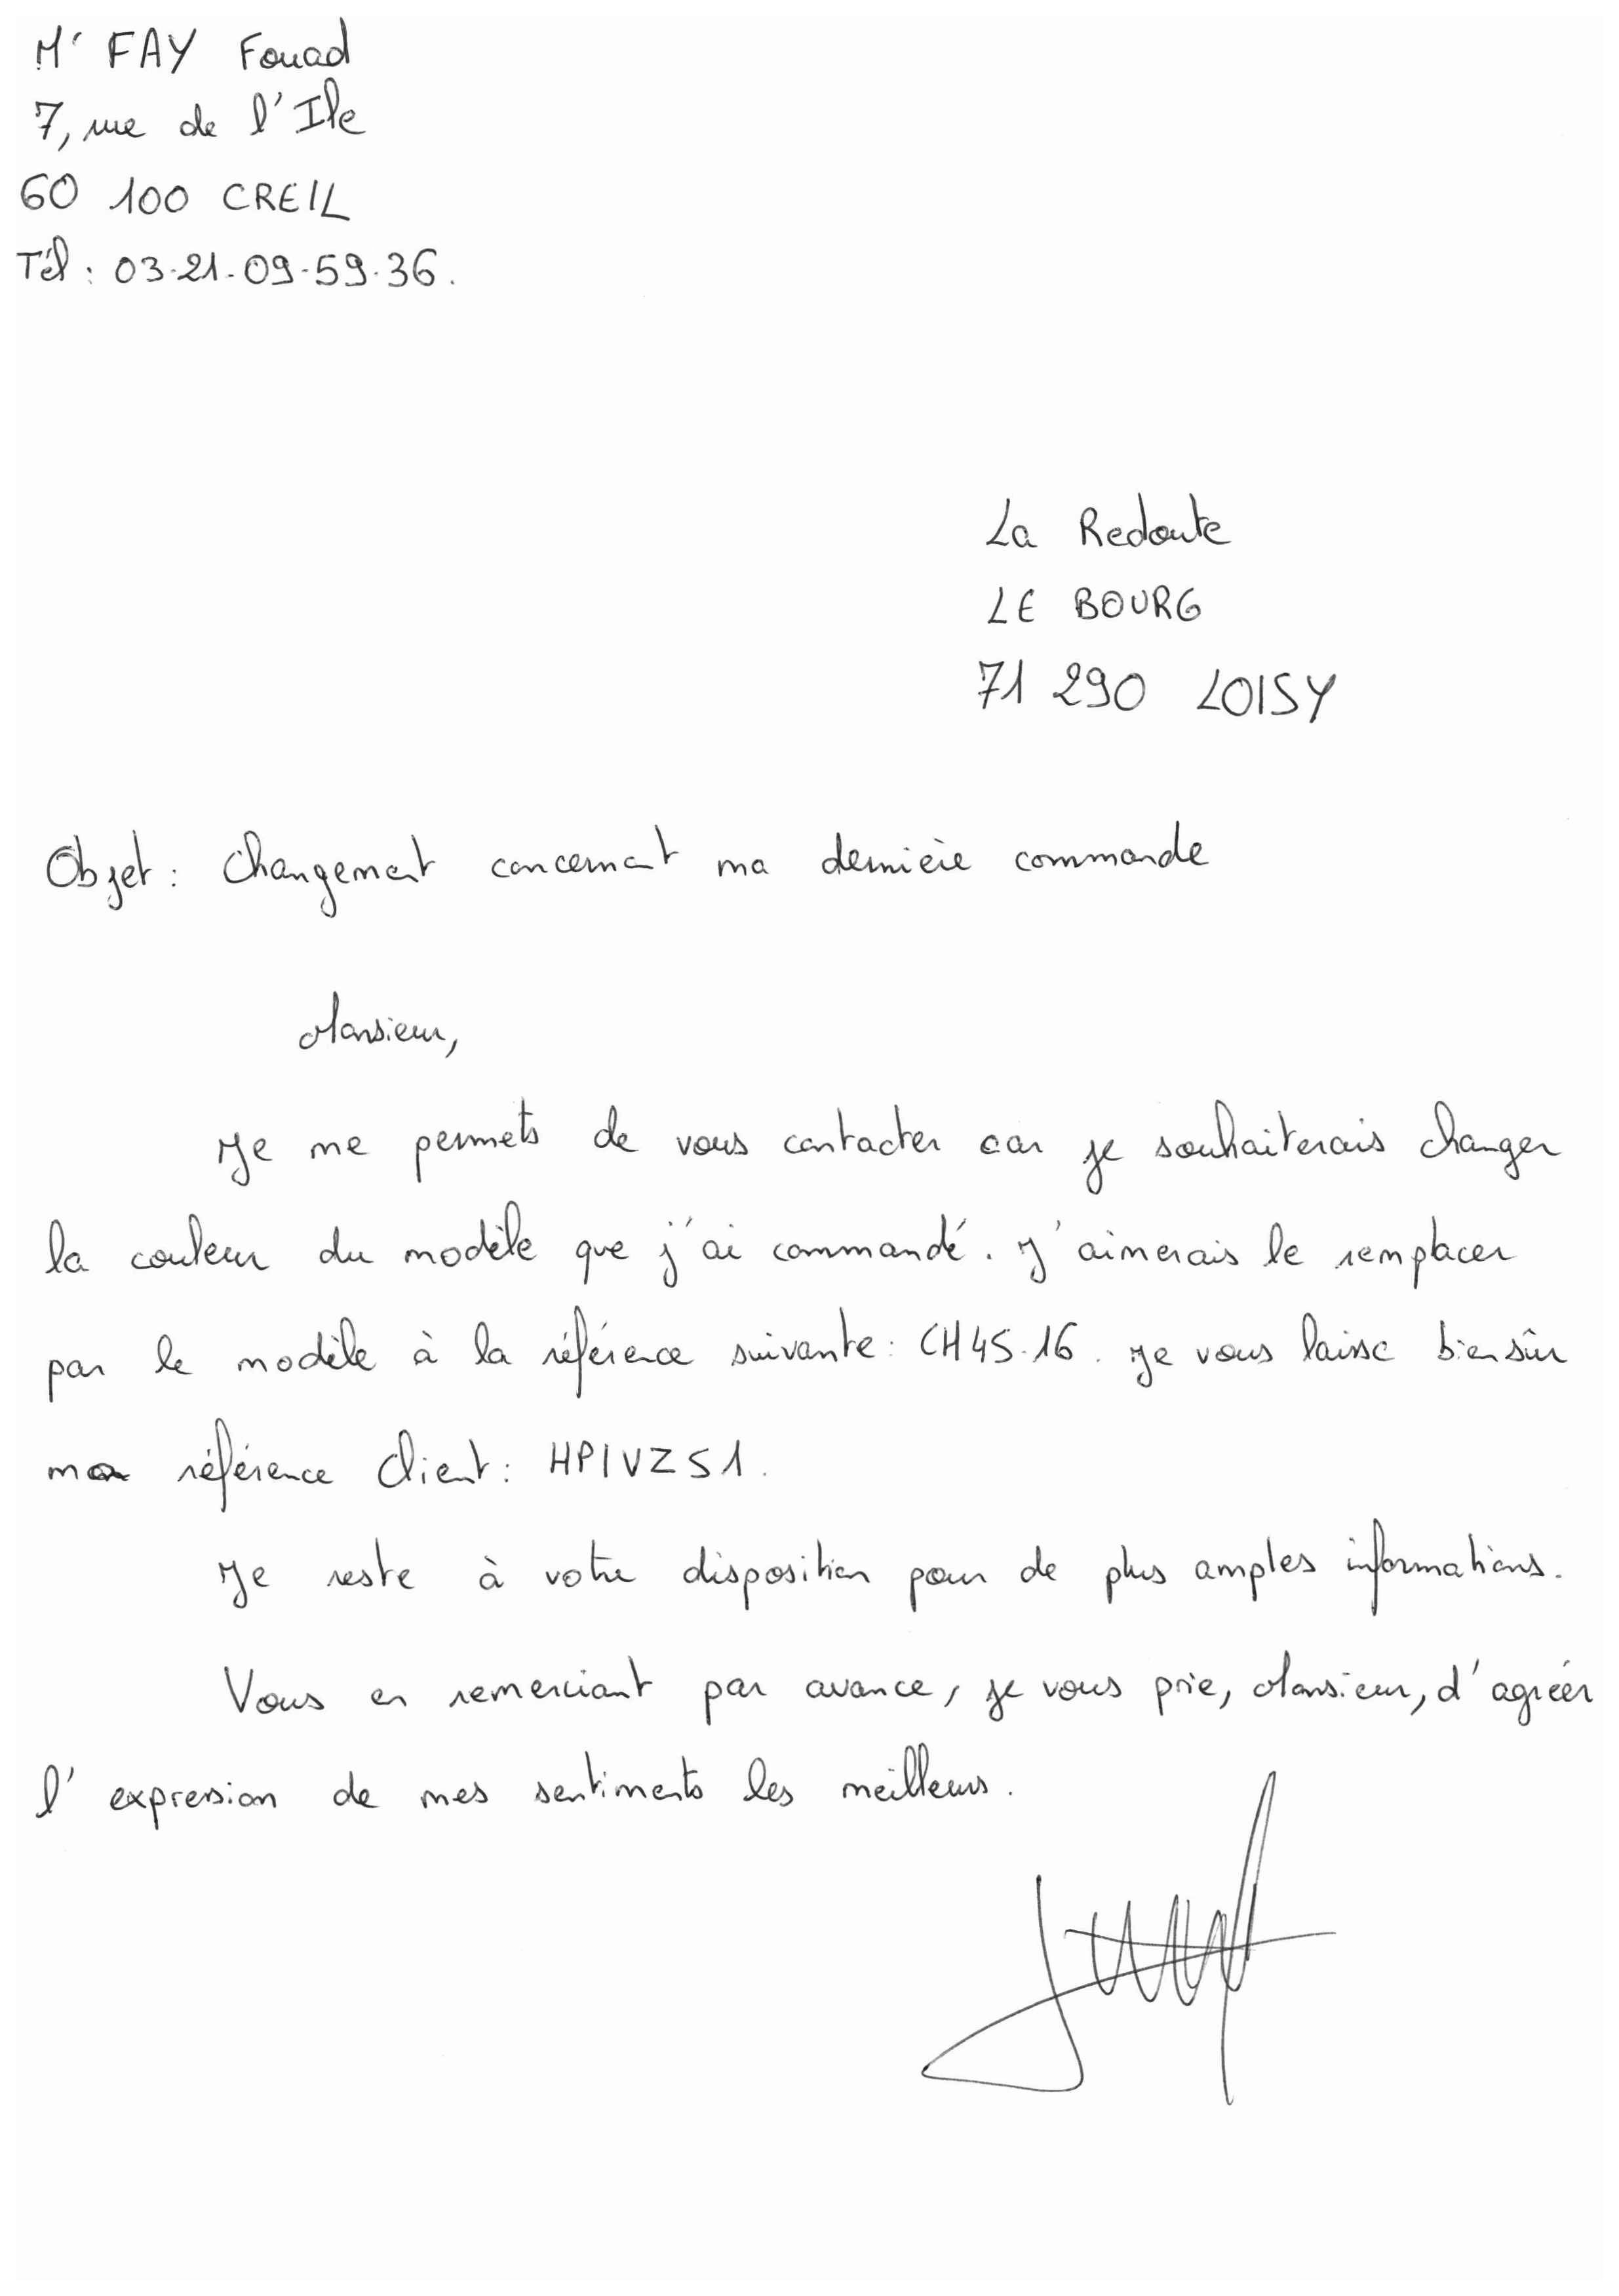 Mr FAY Fouad
7, rue de l'Ile
60 100 CREIL
Tél : 03.21.09.59.36.
La Redoute
LE BOURG
71 290 LOISY
Objet : Changement concernant ma dernière commande
Monsieur,
Je me permets de vous contacter car je souhaiterais changer
la couleur du modèle que j'ai commandé. J'aimerais le remplacer
par le modèle à la référence suivante : CH45.16. Je vous laisse biensûr
ma référence client : HPIVZS1.
Je reste à votre disposition pour de plus amples informations.
Vous en remerciant par avance, je vous prie, Monsieur, d'agréer
l'expression de mes sentiments les meilleurs.